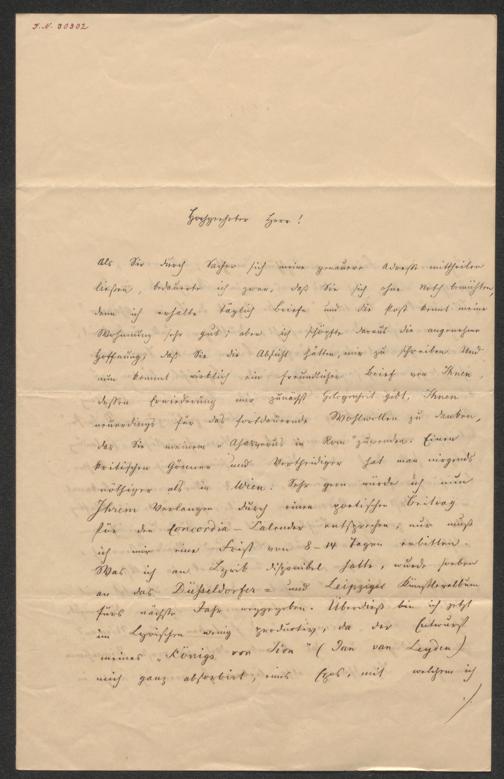 I.N. 30302
Hochgeehrter Herr!
Als Sie durch Sacher sich meine genauere Adresse mittheilen
ließen, bedauerte ich zwar, daß Sie sich ohne Noth bemühten,
denn ich erhalte täglich Briefe und die Post kennt meine
Wohnung sehr gut; aber ich schöpfte daraus die angenehme
Hoffnung, daß Sie die Absicht hätten, mir zu schreiben. Und
nun kommt wirklich ein freundlicher Brief von Ihnen,
dessen Erwiederung mir zunächst Gelegenheit gibt, Ihnen
neuerdings für das fortdauernde Wohlwollen zu danken,
das Sie meinem „Ahasverus in Rom" zuwenden. Einen
kritischen Gönner und Vertheidiger hat man nirgends
nöthiger als in Wien. Sehr gern würde ich nun
Ihrem Verlangen durch einen poetischen Beitrag
für den Concordia-Calender entsprechen; nur muß
ich mir eine Frist von 8–14 Tagen erbitten.
Was ich an Lyrik disponibel hatte, wurde soeben
an das Düsseldorfer- und Leipziger Künstleralbum
fürs nächste Jahr weggegeben. Überdieß bin ich jetzt
im Lyrischen wenig productiv, da der Entwurf
meines „Königs von Sion" (Jan van Leyden)
mich ganz absorbirt, eines Epos, mit welchem ich
./.